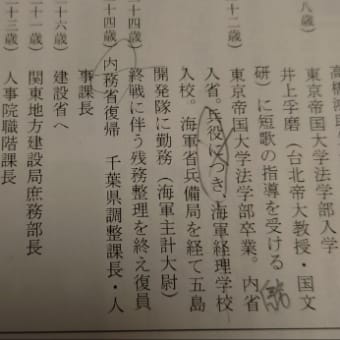 高橋
八歳）　東京帝国大学法学部入学
井上孚磨（台北帝大教授・国文
研）に短歌の指導を受ける
十二歳）　東京帝国大学法学部卒業。内
入省。兵役につき、海軍経理学校
入校。海軍省兵備局を経て五島
開発隊に勤務（海軍主計大尉）
十四歳）　終戦に伴う残務整理を終え復員
十四歳）　内務省復帰　千葉県調整課長・人
事課長
十六歳）　建設省へ
二十三歳）　関東地方建設局庶務部長
二十三歳）　人事院職階課長